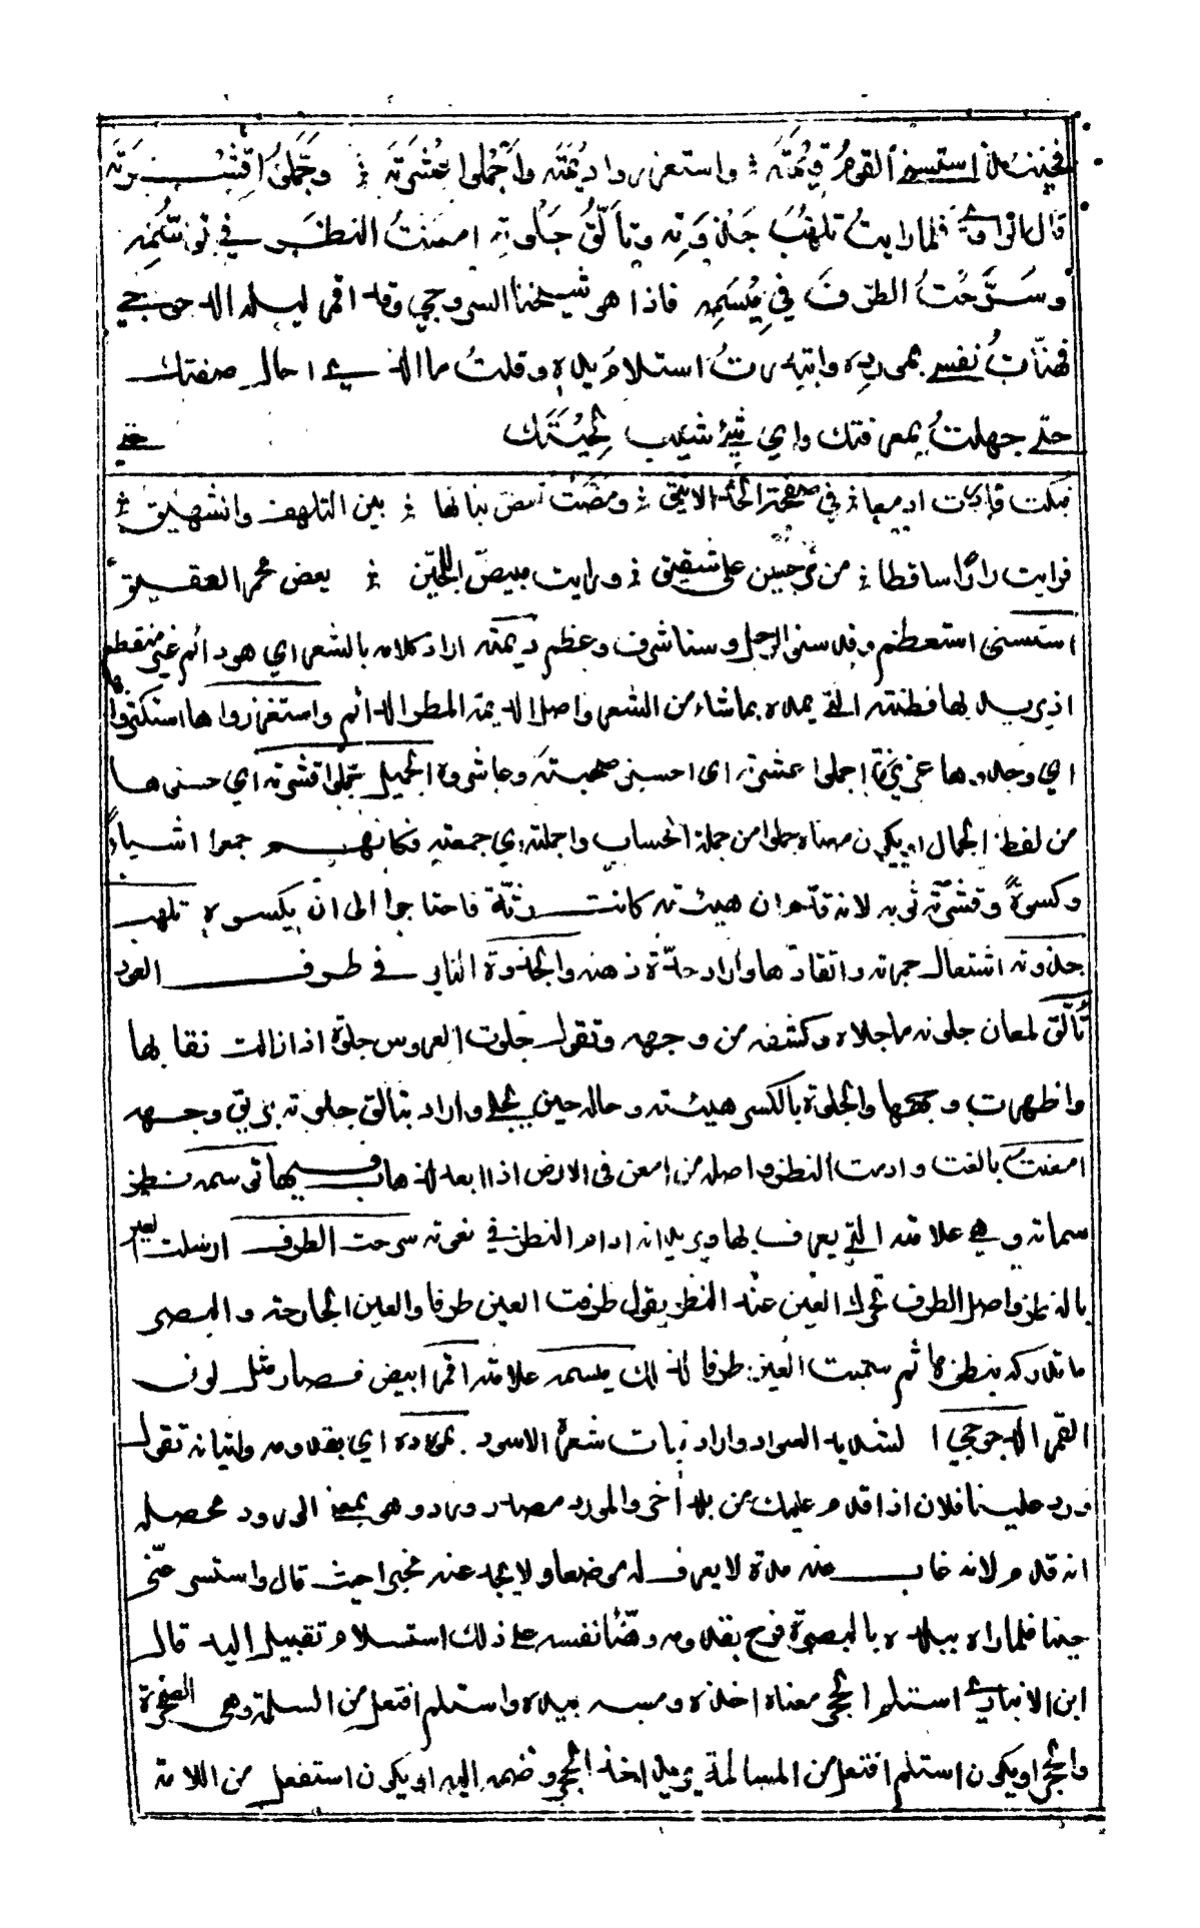 فحينئذ استسنى القوم قيمته ؛ واستغزروا ديمته واجملوا عشرته ؛ وجملوا قشرته
قال الراوي فلما رايت تلهب جذوته وتألق جلوته امعنت النظر في توسمه
وسرحت الطرف في ميسمه فاذا هو شيخنا السروجي وقد اقمر ليله الدجوجي
فهنأت نفسي بمورده وابتدرت استلام يده وقلت ما الذي احال صفتك
حتى جهلت معرفتك واي شيء شيب لحيتك حتى
في صفحة الخد ؛ بين التلهف والشهيق ؛
فرايت ساقطا ؛ من نرجسين على شقيق ؛ ورايت مبيض اللجين ؛ يعض محمر العقيق
استسنى استعظم وقد سنى الرجل وسنا شرف وعظم ديمته اراد كلامه بالشعر اي هو دائم غير منقطع
اذ يريد بها فطنته التي يمده بما شاء من الشعر واصل الديمة المطر الدائم واستغزروا ها استكثروا
اي وجدوها غزيرة اجملوا عشرته اى احسنوا صحبته وعاشروه الجميل جملوا قشرته اي حسنوها
من لفظ الجمال او يكون معناه جملوا من جملة الحساب واجملته اي جمعته فكانهم جمعوا اشياء
وكسوة وقشرته ثوبه لانه قدم ان هيئته كانت رثة فاحتاجوا الى ان يكسوه تلهب
جذوته اشتعال جمرته واتقادها واراد حدة ذهنه والجذوة النار في طرف العود
تألق لمعان جلوته ما جلاه وكشفه من وجهه وتقول جلوت العروس جلوة اذا زالت نقابها
واظهرت وجهها والجلوة بالكسر هيئته وحاله حين يجلى واراد بتألق جلوته بريق وجهه
امعنت بالغت وادمت النظر واصله من امعن في الارض اذا ابعد الذهاب فيها توسمه نظر
سماته وهي علامته التي يعرف بها ويريد انه ادام النظر في نعوته سرحت الطرف ارسلت العين
بالنظر واصل الطرف تحرك العين عند النظر يقول طرفت العين طرفا والعين الجارحة والبصر
ما تدركه بنظرها ثم سميت العين طرفا لذلك ميسمه علامته اقمر ابيض فصار مثل لون
القمر الدجوجي الشديد السواد واراد نبات شعره الاسود بمورده اي بقدومه واتيانه تقول
ورد علينا فلان اذا قدم عليك من بلد أخر والمورد مصدر ورد وهو بمعنى الورود محصله
انه قدم لانه غاب عنه مدة لا يعرف له موضعا ولا يجد عنه مخبرا حيث قال واستسر عني
حينا فلما راه ببلده بالبصرة فرح بقدومه وهنأ نفسه على ذلك استسلام تقبيل اليد قال
ابن الانباري استلم الحجر معناه اخذه ومسه بيده واستلم افتعل من السلمة وهي الصخرة
والحجر او يكون استلم افتعل من المسالمة يريد اخذ الحجر وضمه اليه او يكون استفعل من اللامة